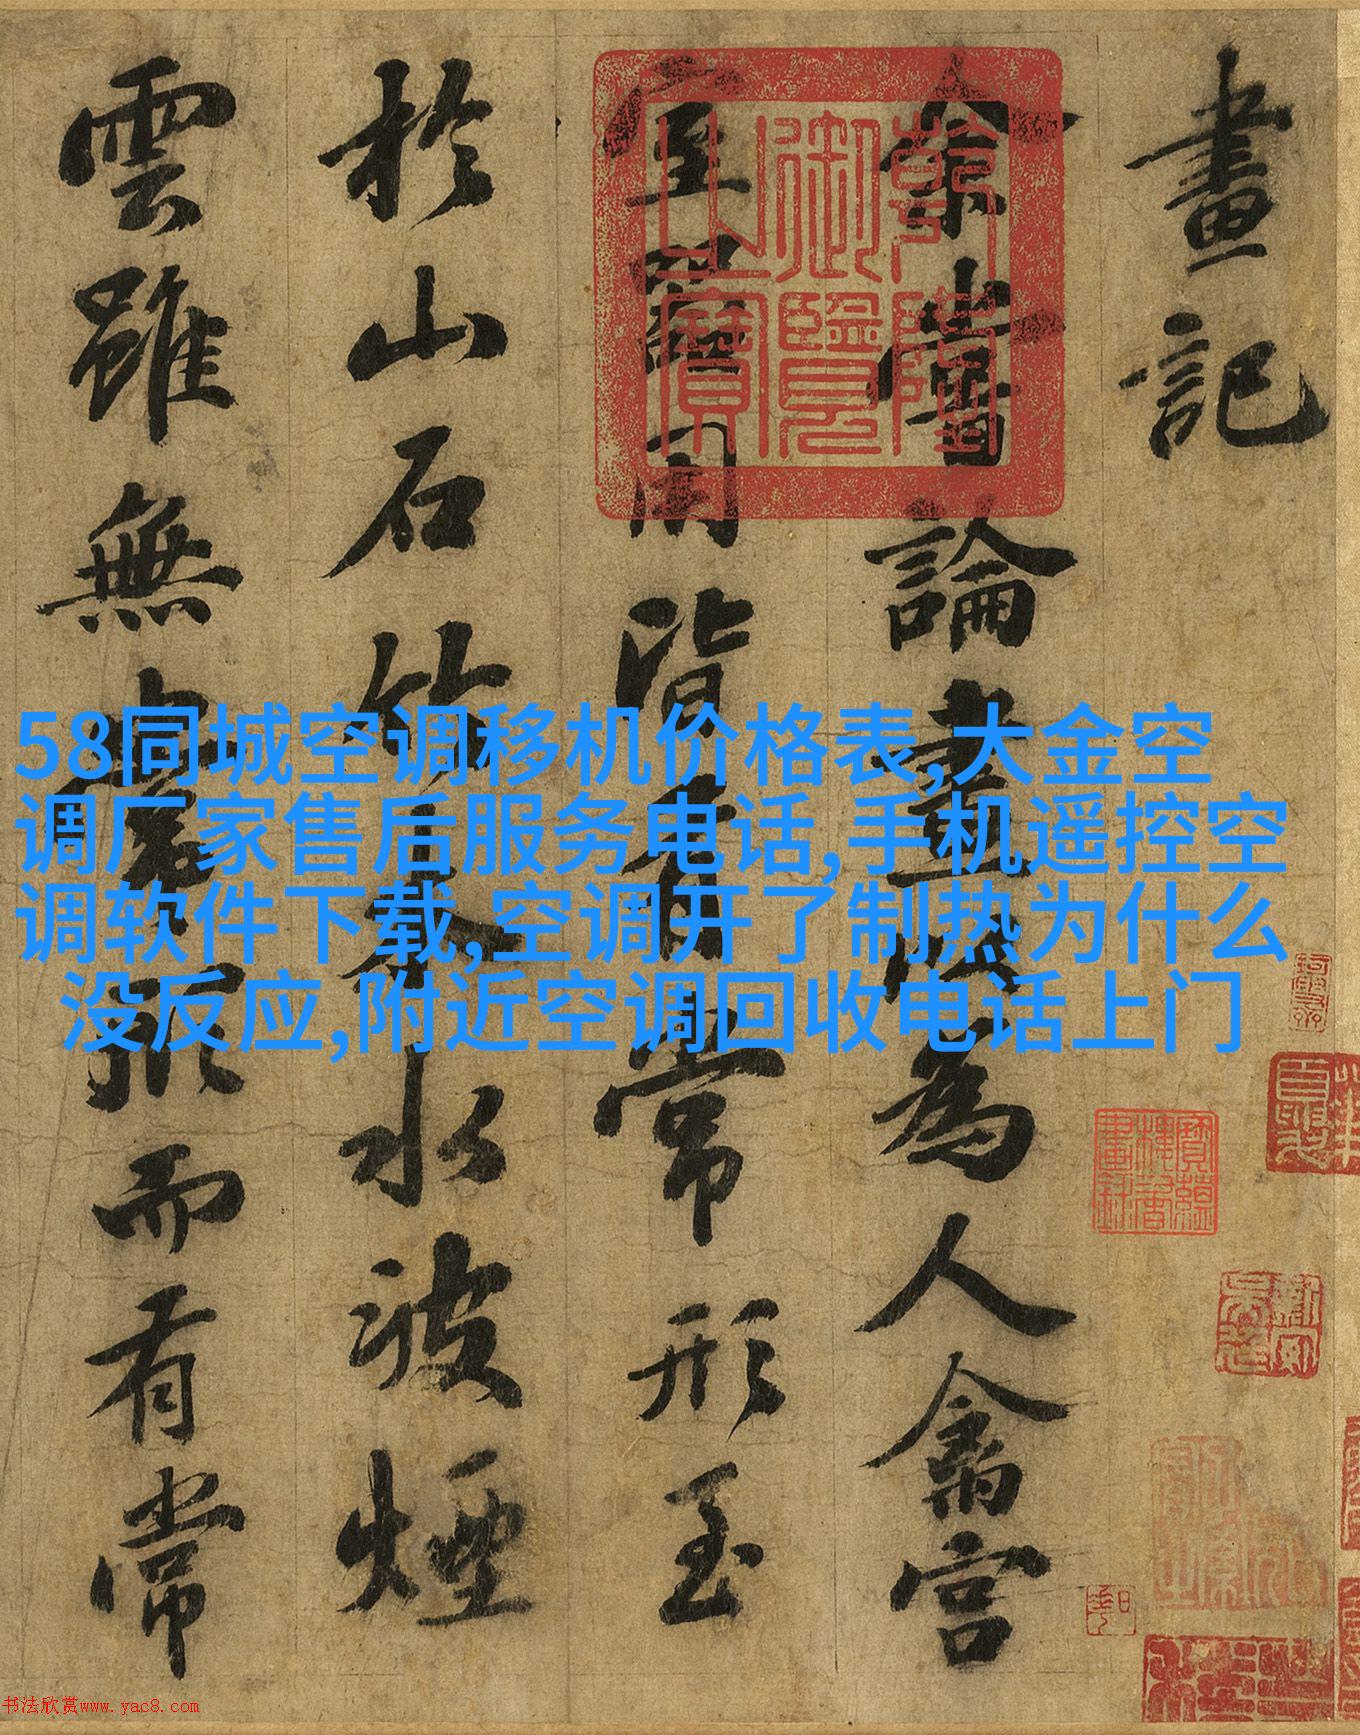 畫記
余嘗論畫以為人禽宮
室器用皆有常形至
於山石竹木水波煙
雲雖無常形而有常
乾隆御覽之寶
58同城空调移机价格表,大金空
调厂家售后服务电话,手机遥控空
调软件下载,空调开了制热为什么
没反应,附近空调回收电话上门
书法欣赏www.yac8.com